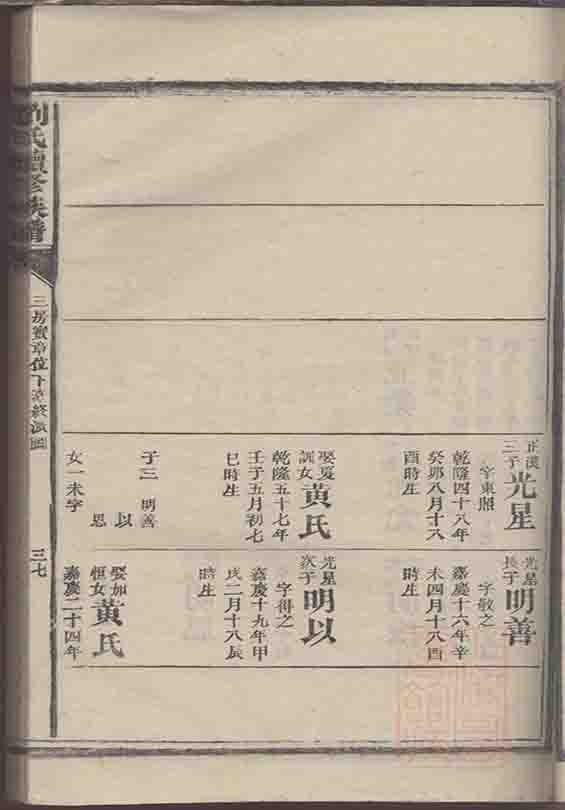 劉氏續修族譜
三房賓章位下
三七
正漢
三子
光星
字東照
乾隆四十八年
癸卯八月十八
酉時生
娶夏
訓女
黃氏
乾隆五十七年
壬子五月初七
巳時生
子三 明善
以
思
女一未字
光星
長子
明善
字敬之
嘉慶十六年辛
未四月十八酉
時生
光星
次子
明以
字得之
嘉慶十九年甲
戌二月十八辰
時生
娶如
恒女
黃氏
嘉慶二十四年